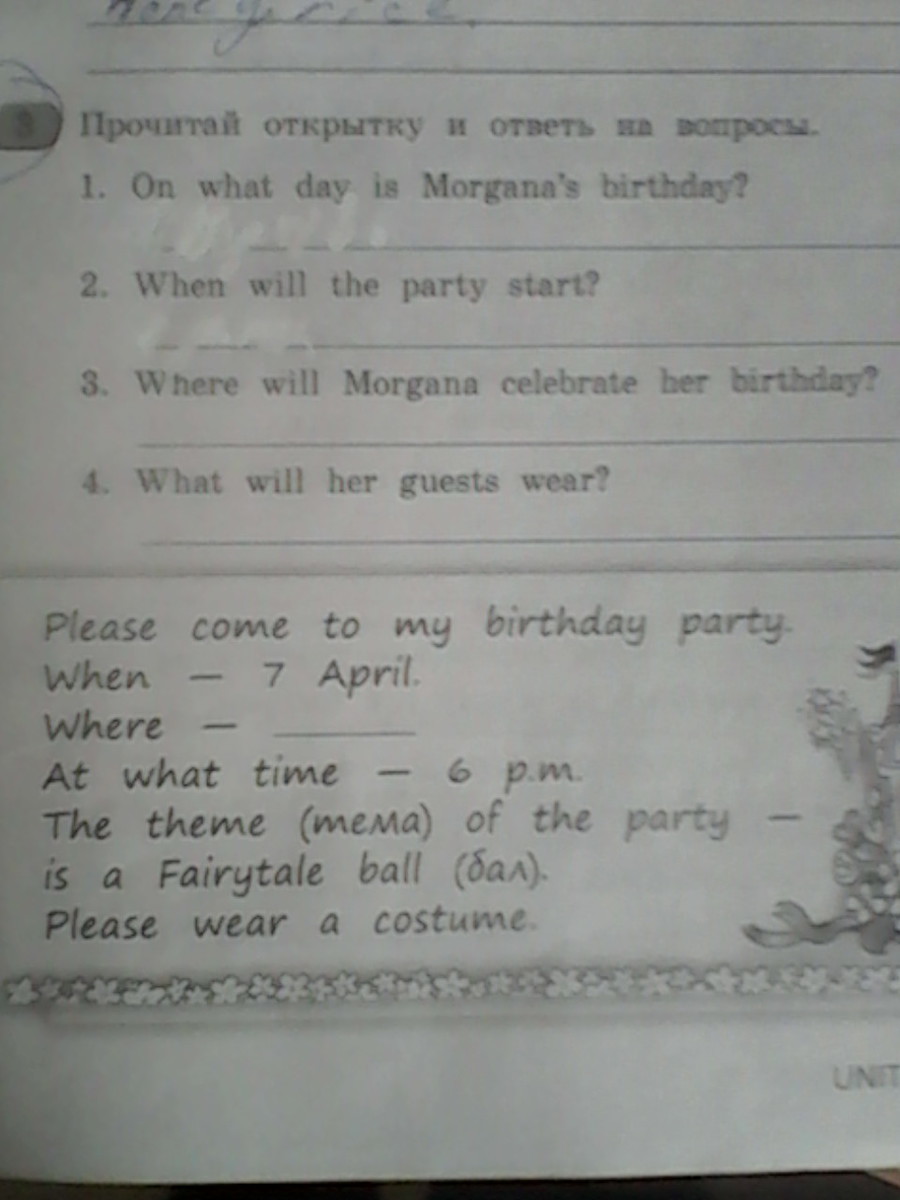 Прочитай открытку и ответь на вопросы.
1. On what day is Morgana's birthday?
2. When will the party start?
3. Where will Morgana celebrate her birthday?
4. What will her guests wear?
Please come to my birthday party.
When — 7 April.
Where — ________
At what time — 6 p.m.
The theme (тема) of the party —
is a Fairytale ball (бал).
Please wear a costume.
UNIT